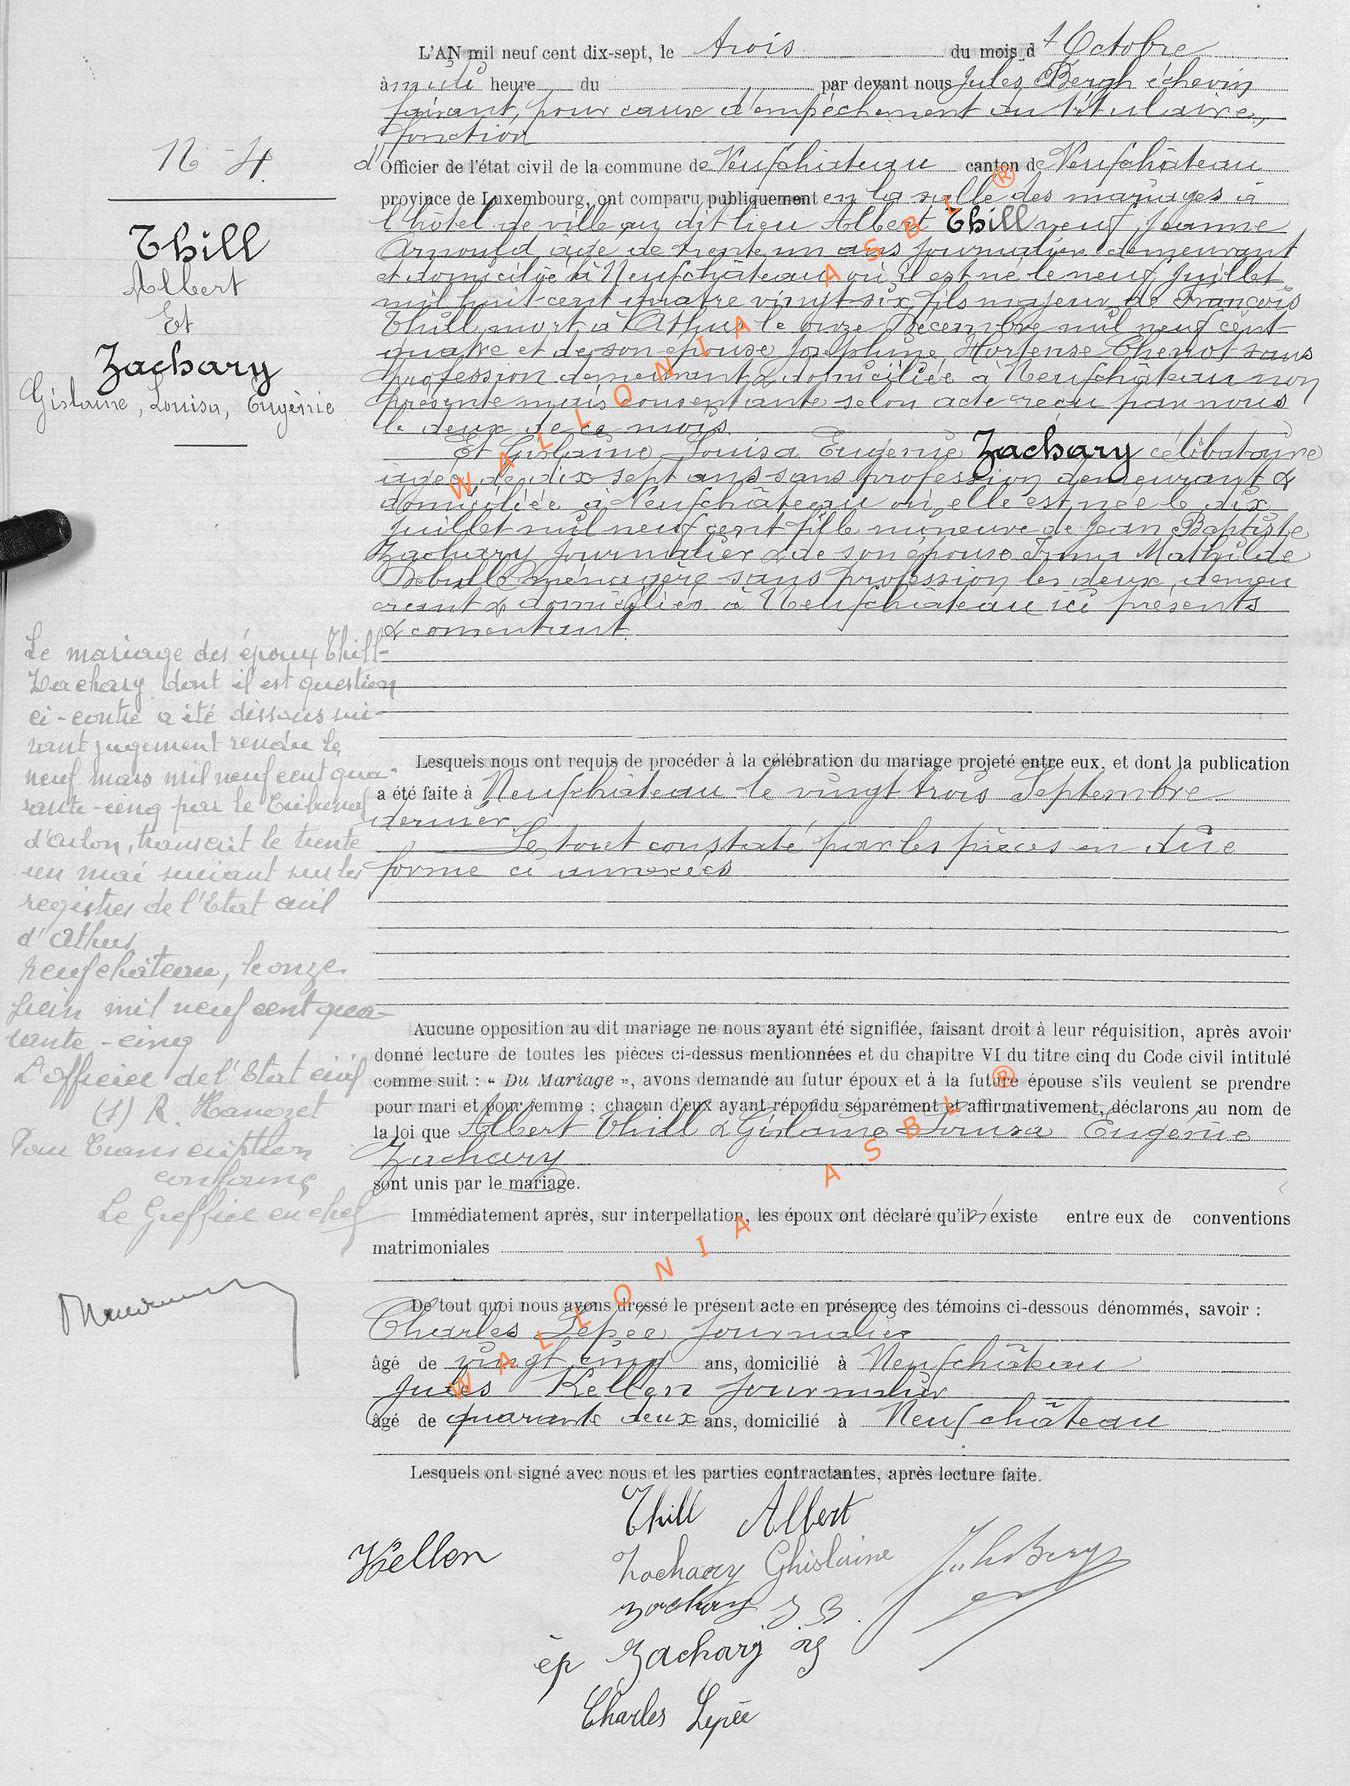 L'AN mil neuf cent dix-sept, le trois du mois d'Octobre
à midi heure du par devant nous Jules Bergh échevin
faisant, pour cause d'empêchement du titulaire,
fonction
d'Officier de l'état civil de la commune de Neufchâteau canton de Neufchâteau
province de Luxembourg, ont comparu publiquement en la salle des mariages à
l'hôtel de ville au dit lieu Albert Thill veuf Jeanne
Arnould agé de trente un ans journalier demeurant
et domicilié à Neufchâteau où il est né le neuf Juillet
mil huit cent quatre vingt six, fils majeur de François
Thill mort à Athus le onze Décembre mil neuf cent
quatre et de son épouse Joséphine, Hortense Chenot sans
profession demeurant & domiciliée à Neufchâteau non
présente mais consentante selon acte reçu par nous
le deux de ce mois
Et Gislaine Louisa Eugénie Zachary célibataire
agée de dix sept ans sans profession demeurant &
domiciliée à Neufchâteau où elle est née le dix
Juillet mil neuf cent fille mineure de Jean Baptiste
Zachary journalier & de son épouse Irma Mathilde
ménagère sans profession les deux demeu
rant & domiciliés à Neufchâteau ici présents
& consentant
Lesquels nous ont requis de procéder à la célébration du mariage projeté entre eux, et dont la publication
a été faite à Neufchâteau le vingt trois Septembre
dernier
Le tout constaté par les pièces en dûe
forme ci annexées
Aucune opposition au dit mariage ne nous ayant été signifiée, faisant droit à leur réquisition, après avoir
donné lecture de toutes les pièces ci-dessus mentionnées et du chapitre VI du titre cinq du Code civil intitulé
comme suit : « Du Mariage », avons demandé au futur époux et à la future épouse s'ils veulent se prendre
pour mari et pour femme ; chacun d'eux ayant répondu séparément et affirmativement, déclarons au nom de
la loi que Albert Thill & Gislaine Louisa Eugénie
Zachary
sont unis par le mariage.
Immédiatement après, sur interpellation, les époux ont déclaré qu'il n'existe entre eux de conventions
matrimoniales
De tout quoi nous avons dressé le présent acte en présence des témoins ci-dessous dénommés, savoir :
Charles Lepée journalier
âgé de vingt cinq ans, domicilié à Neufchâteau
Jules Kellen journalier
âgé de quarante deux ans, domicilié à Neufchâteau
Lesquels ont signé avec nous et les parties contractantes, après lecture faite.
Thill Albert
Kellen
Zachary Ghislaine
Zachary J B.
ép Zachary
Charles Lepée
Jules Bergh
N - 4.
Thill
Albert
Et
Zachary
Gislaine, Louisa, Eugénie
Le mariage des époux Thill-
Zachary dont il est question
ci-contre a été dissous sui-
vant jugement rendu le
neuf mars mil neuf cent qua-
rante-cinq par le Tribunal
d'Arlon, transcrit le trente
un mai suivant sur les
registres de l'Etat civil
d'Athus
Neufchâteau, le onze
juin mil neuf cent qua-
rante-cinq
L'officier de l'Etat civil
(s) R. Hanozet
Pour transcription
conforme
Le Greffier en chef
WALLONIA ASBL ®
WALLONIA ASBL ®